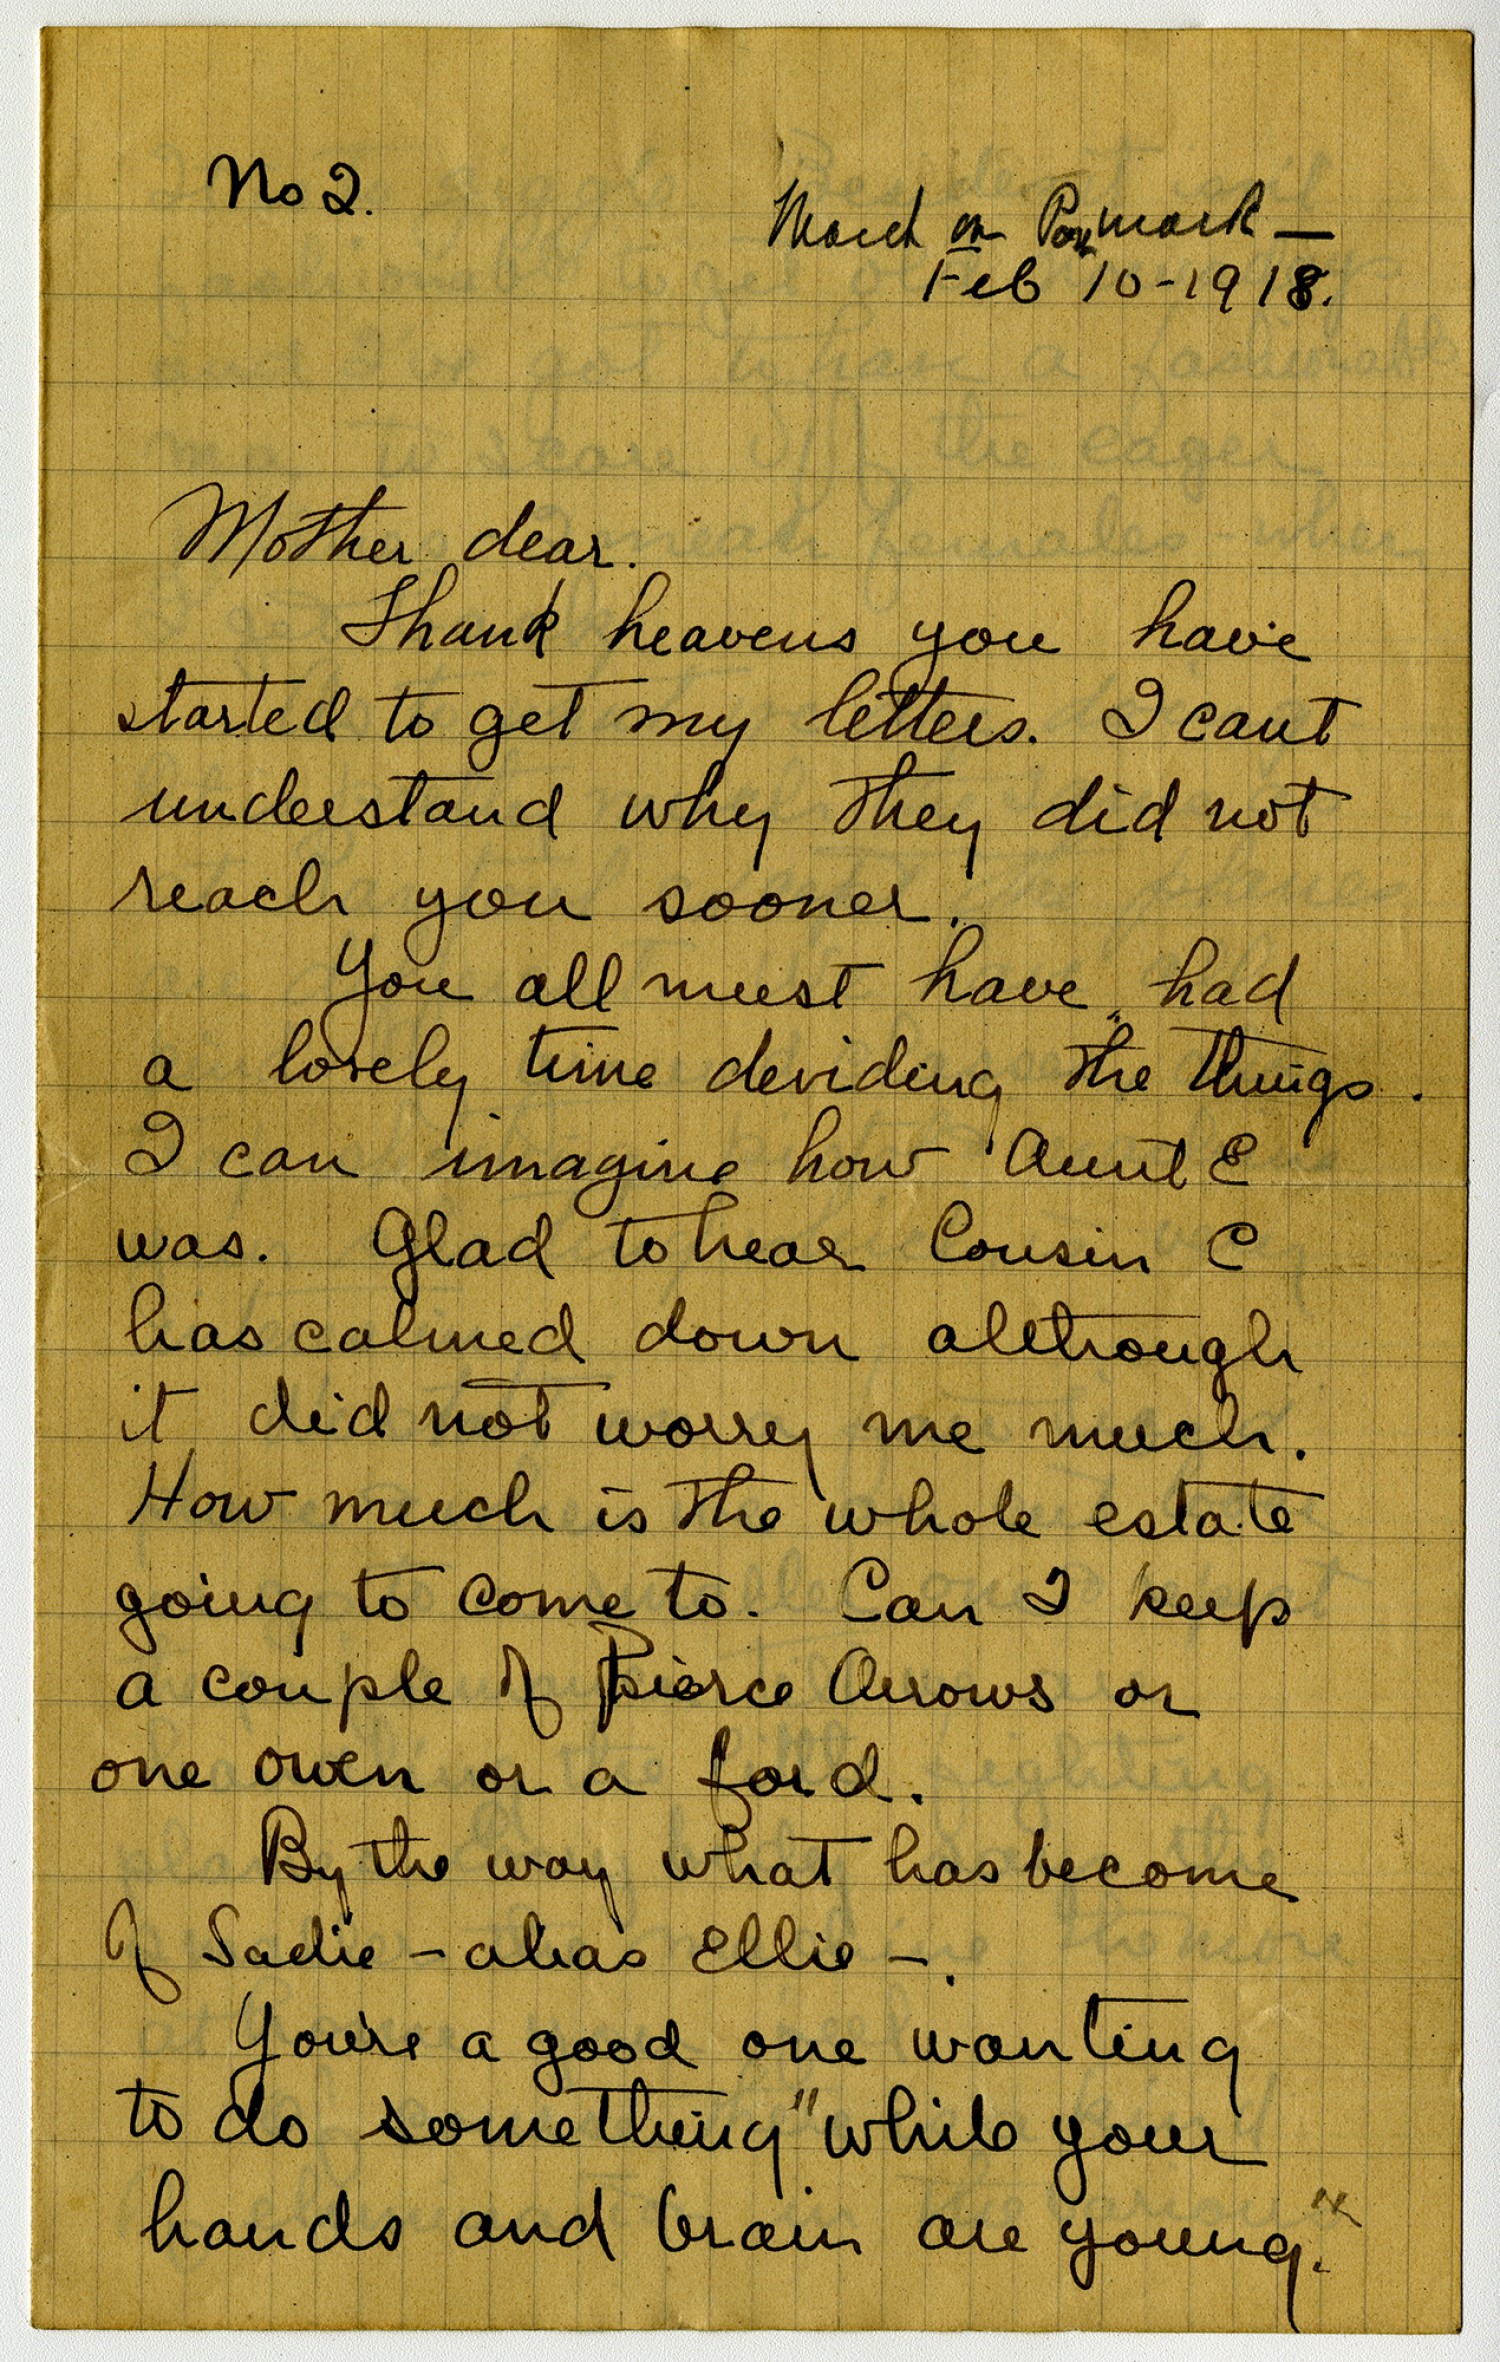 No 2.
March on Posmark —
Feb 10-1918.
Mother dear.
Thank heavens you have
started to get my letters. I cant
understand why they did not
reach you sooner.
You all must have had
a lovely time deviding the things.
I can imagine how Aunt E
was. Glad to hear Cousin C
has calmed down although
it did not worry me much.
How much is the whole estate
going to come to. Can I keep
a couple of Pierce Arrows or
one owen or a ford.
By the way what has become
of Sadie - alias Ellie -.
You're a good one wanting
to do something "while your
hands and brain are young."